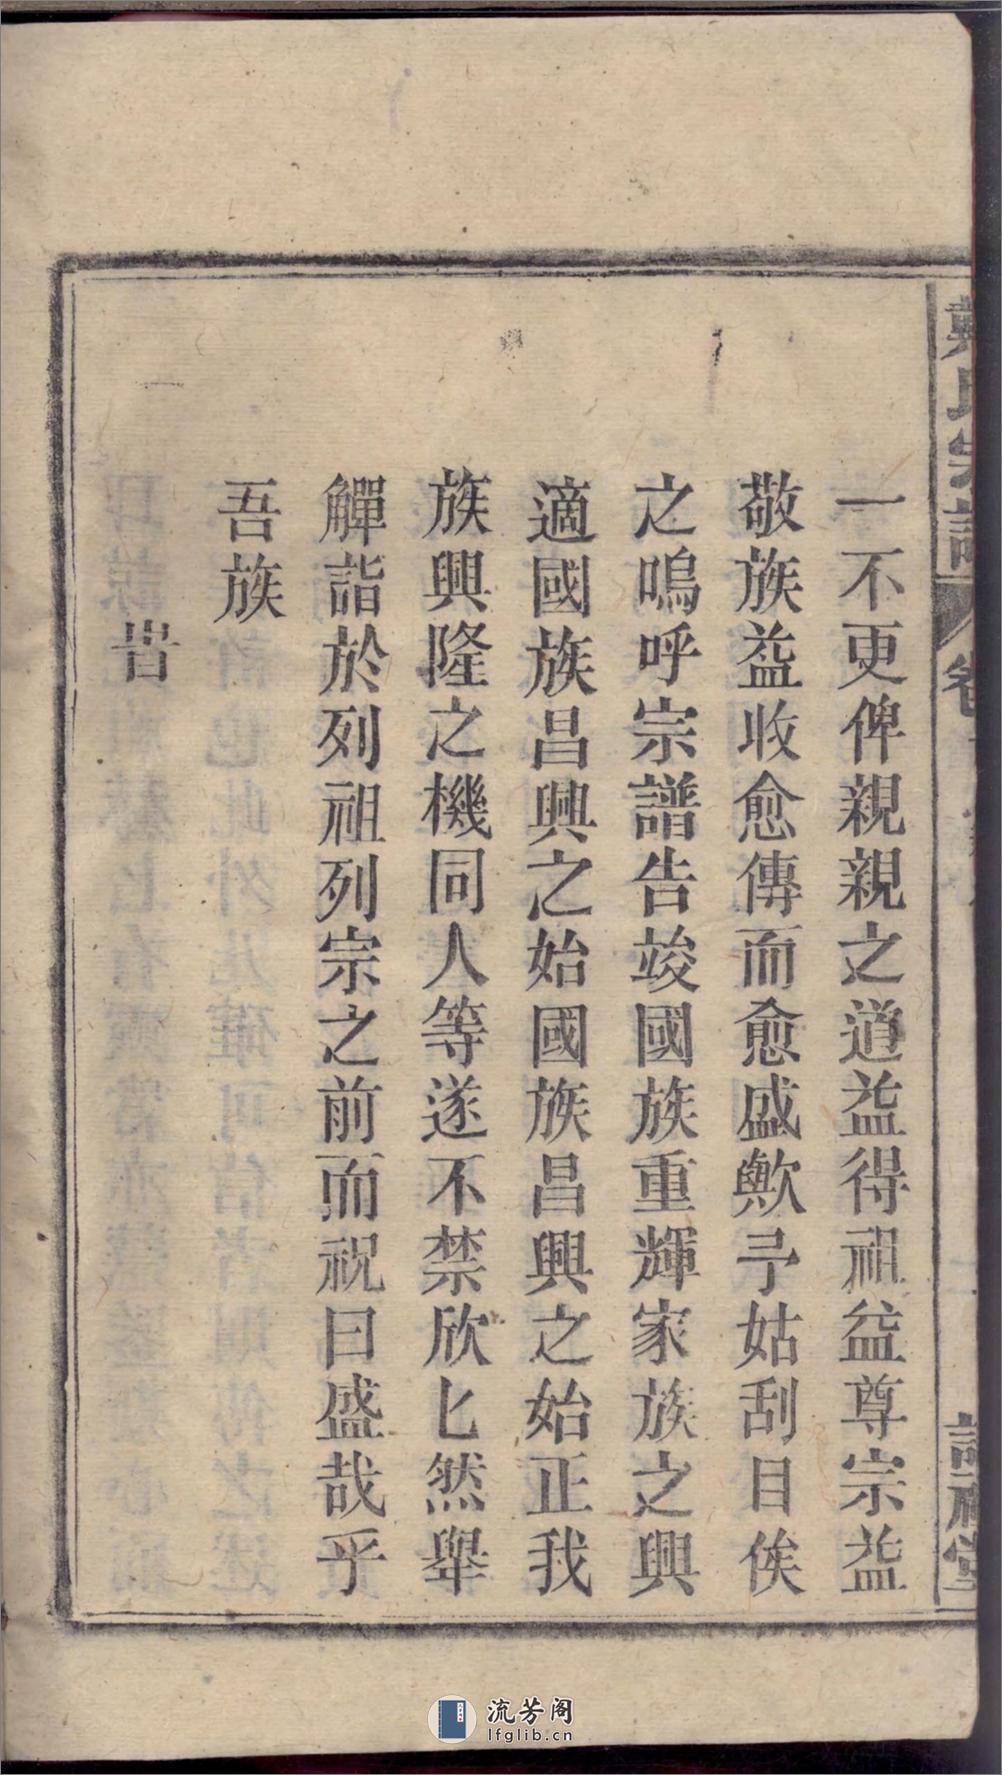 戴氏宗譜
一不更俾親親之道益得祖益尊宗益
敬族益收愈傳而愈盛歟予姑刮目俟
之嗚呼宗譜告竣國族重輝家族之興
適國族昌興之始國族昌興之始正我
族興隆之機同人等遂不禁欣匕然舉
觶詣於列祖列宗之前而祝曰盛哉乎
吾族
旹
流芳阁
lfglib.cn